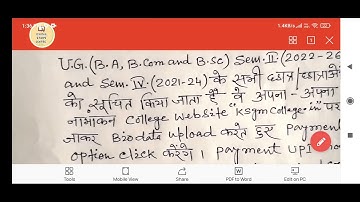 1:36
1.4KB/s
U.G. (B.A, B.Com and B.Sc) Sem. II (2022-26
and Sem. IV. (2021-24) के सभी छात्र/छात्राओं
को सूचित किया जाता है वे अपना-अपना
नामांकन College WebSite "KSymCollege.in" पर
जाकर Biodata upload करते हुए payment
option click करेंगे। payment UPI
Tools
Mobile View
PDF to Word
Edit on PC